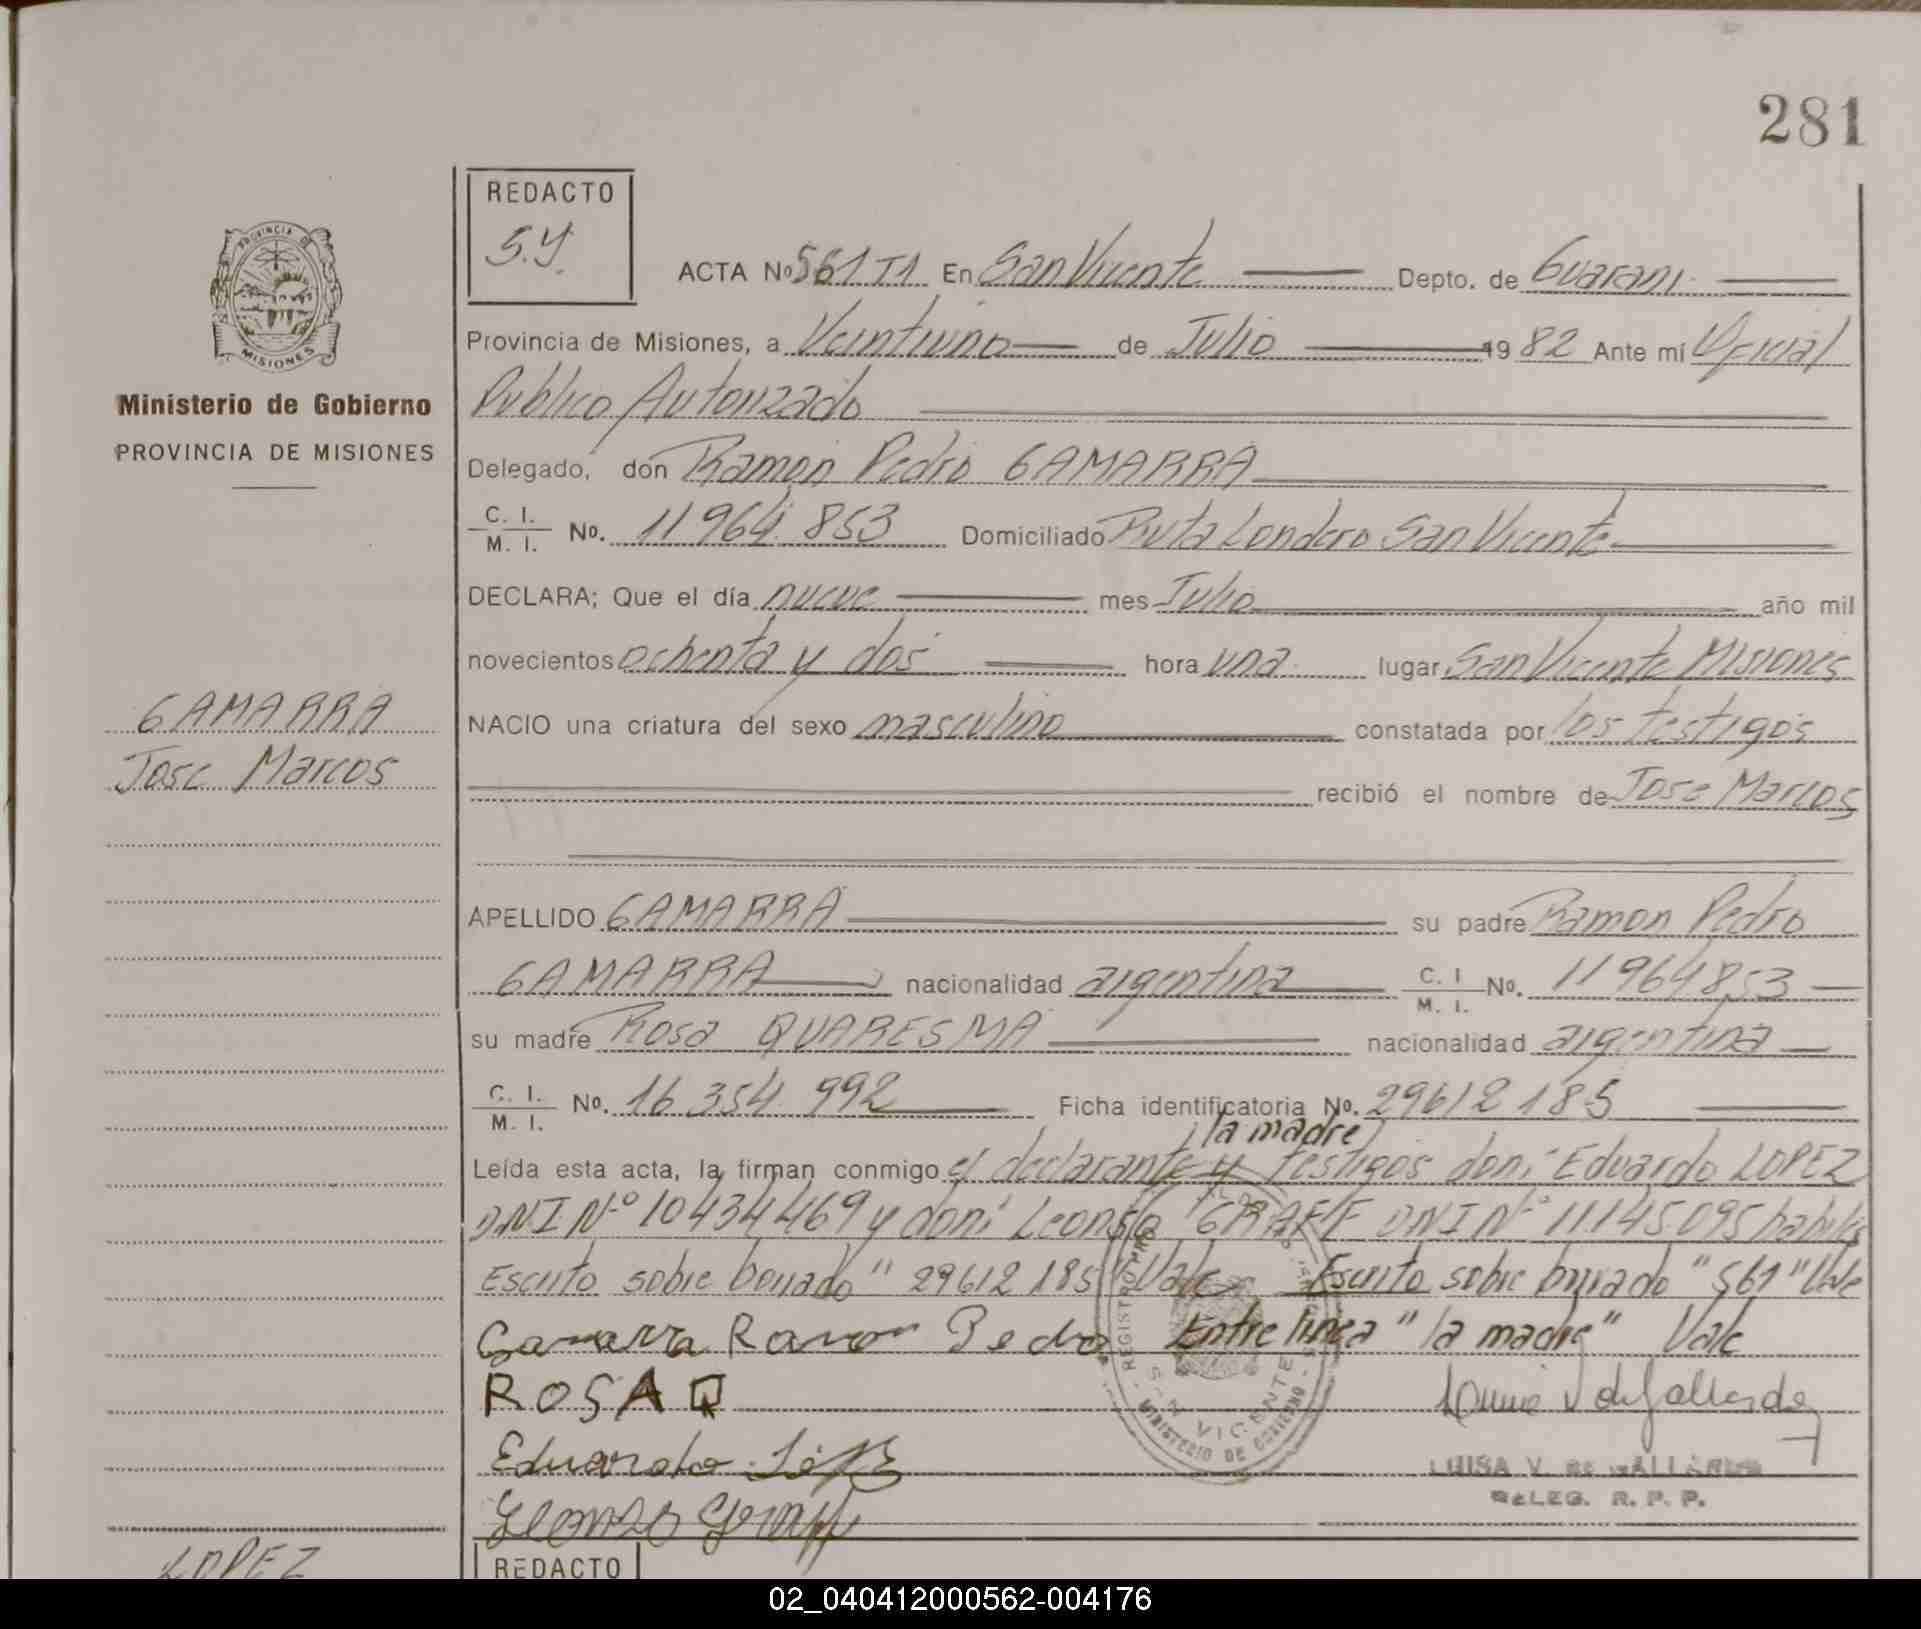 281
REDACTO
S.Y.
PROVINCIA DE
MISIONES
Ministerio de Gobierno
PROVINCIA DE MISIONES
ACTA No 561 T1 En San Vicente Depto. de Guarani
Provincia de Misiones, a Veintiuno de Julio 19 82 Ante mí Oficial
Publico Autorizado
Delegado, don Ramon Pedro GAMARRA
C. I. M. I. No. 11 964 853 Domiciliado Ruta Londero San Vicente
DECLARA; Que el día nueve mes Julio año mil
novecientos ochenta y dos hora una lugar San Vicente Misiones
GAMARRA
Jose Marcos
NACIO una criatura del sexo masculino constatada por los testigos
recibió el nombre de Jose Marcos
APELLIDO GAMARRA su padre Ramon Pedro
GAMARRA nacionalidad argentina C. I M. I. No. 11964853
su madre Rosa QUARESMA nacionalidad argentina
C. I. M. I. No. 16 354 992 Ficha identificatoria No. 29612185
la madre
Leída esta acta, la firman conmigo el declarante y testigos don: Eduardo LOPEZ
DNI Nº 10434469 y don: Leonso GRAFF DNI Nº 11.145.095 habiles
Escrito sobre borrado "29612185" Vale Escrito sobre borrado "561" Vale
Gamarra Ramon Pedro Entre linea "la madre" Vale
ROSA Q
Eduardo López
Leonso Graff
SAN VICENTE
MINISTERIO DE GOBIERNO
LUISA V. DE GALLARDO
DELEG. R. P. P.
LOPEZ
REDACTO
02_040412000562-004176